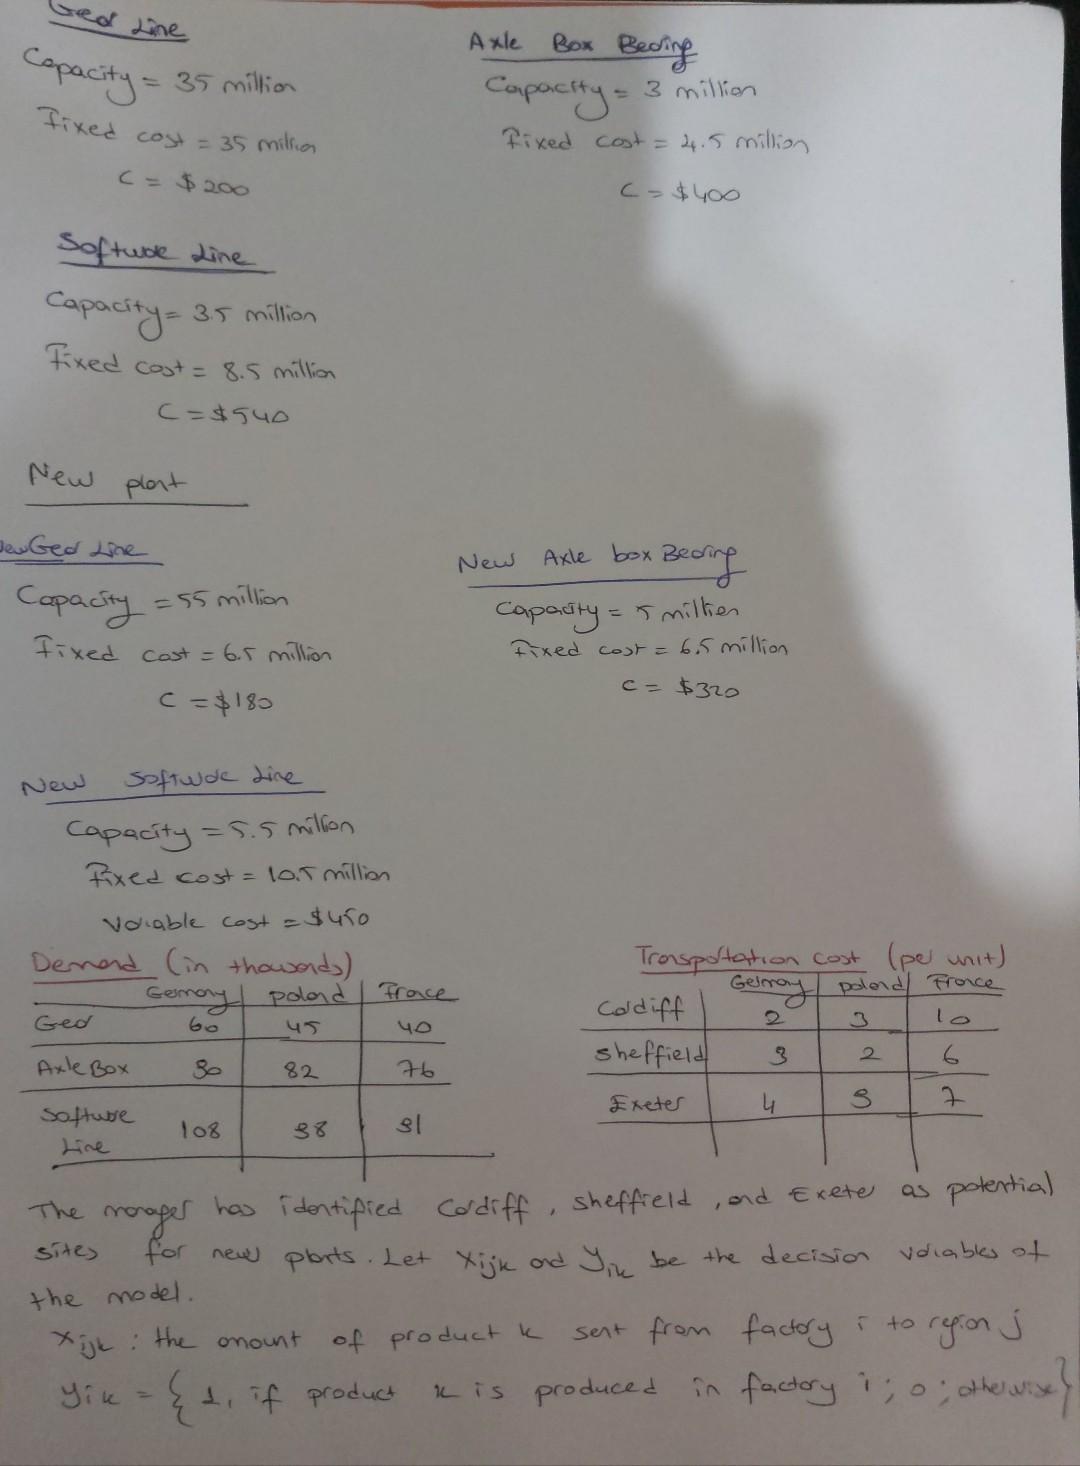 Gear Line
Capacity = 35 million
Fixed cost = 35 million
C = $200
Axle Box Bearing
Capacity = 3 million
Fixed cost = 4.5 million
C = $400
Software Line
Capacity = 3.5 million
Fixed cost = 8.5 million
C = $540
New plant
New Gear Line
Capacity = 55 million
Fixed cost = 6.5 million
C = $180
New Axle box Bearing
Capacity = 5 million
Fixed cost = 6.5 million
C = $320
New Software Line
Capacity = 5.5 million
Fixed cost = 10.5 million
Variable cost = $450
Demand (in thousands)
Germany poland France
Gear 60 45 40
Axle Box 82 76
Software 108
Line
Transportation cost (per unit)
Germany poland France
Cardiff 2 3 10
Sheffield 3 2 6
Exeter 4 7
The manager has identified Cardiff, Sheffield, and Exeter as potential
sites for new plants. Let Xijk and Yik be the decision variables of
the model.
Xijk : the amount of product k sent from factory i to region j
Yik = { 1, if product k is produced in factory i; 0; otherwise}